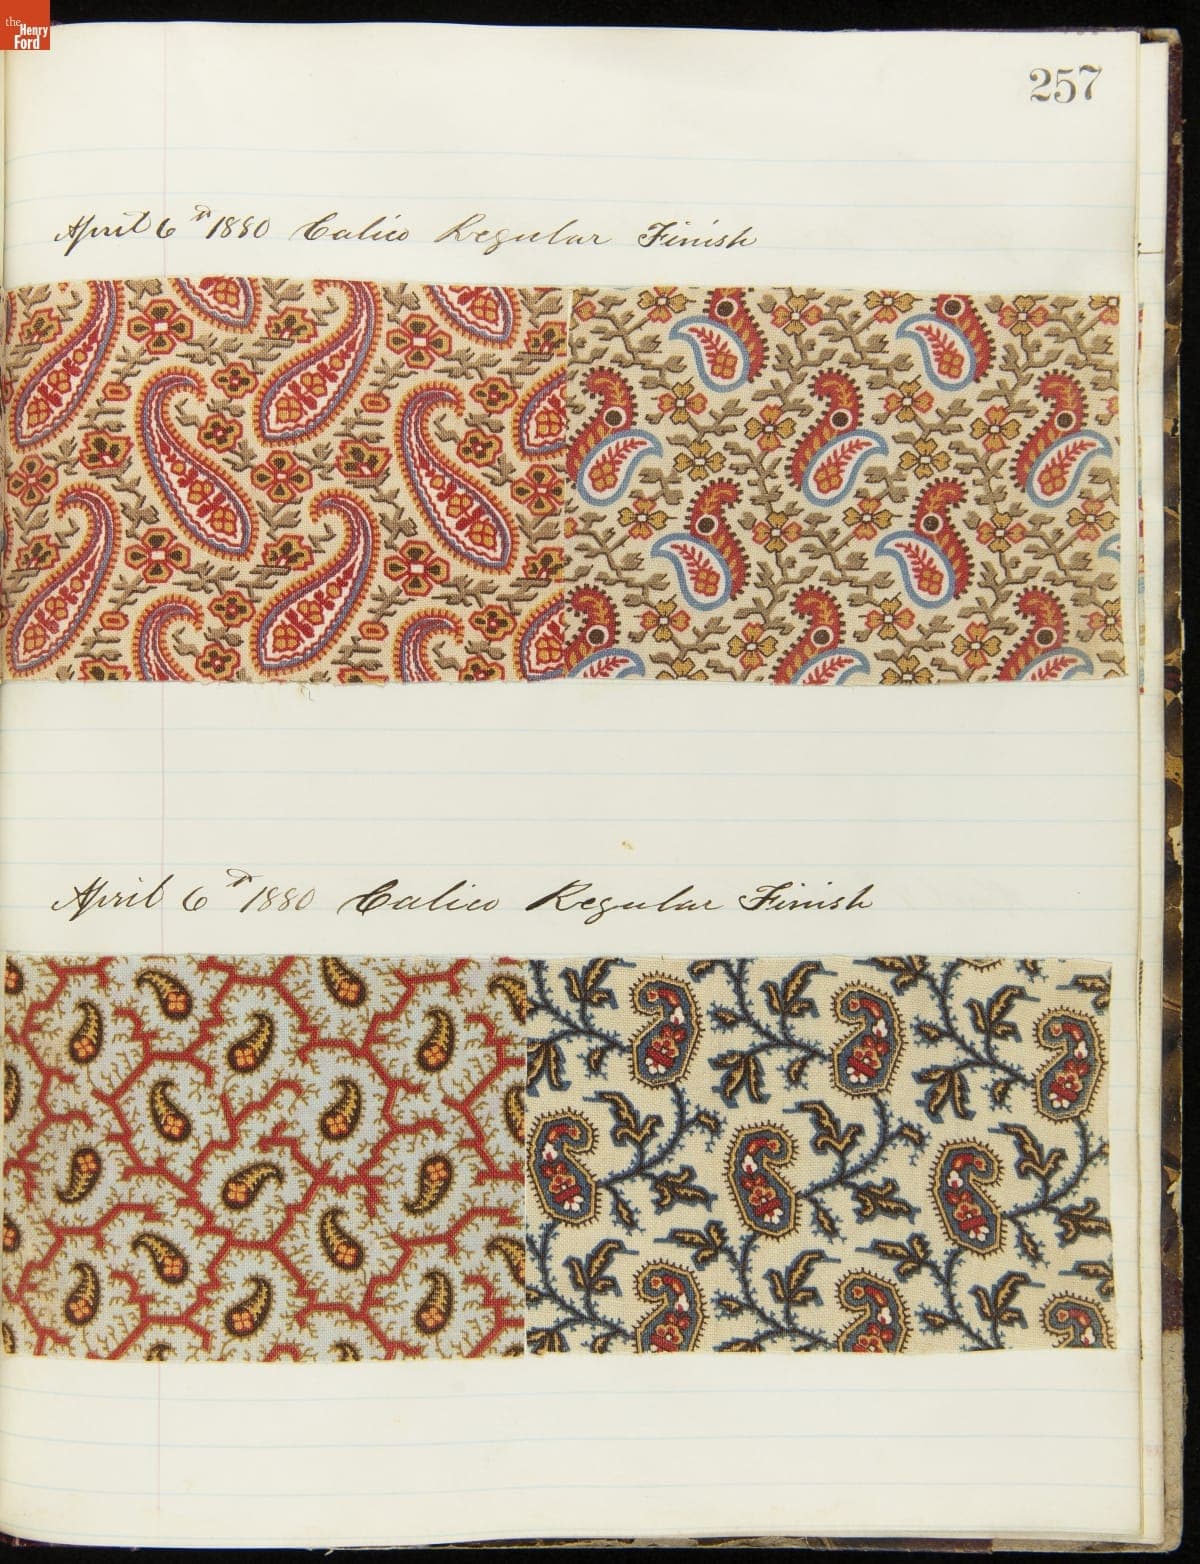 the
Henry
Ford
257
April 6th 1880 Calico Regular Finish
April 6th 1880 Calico Regular Finish